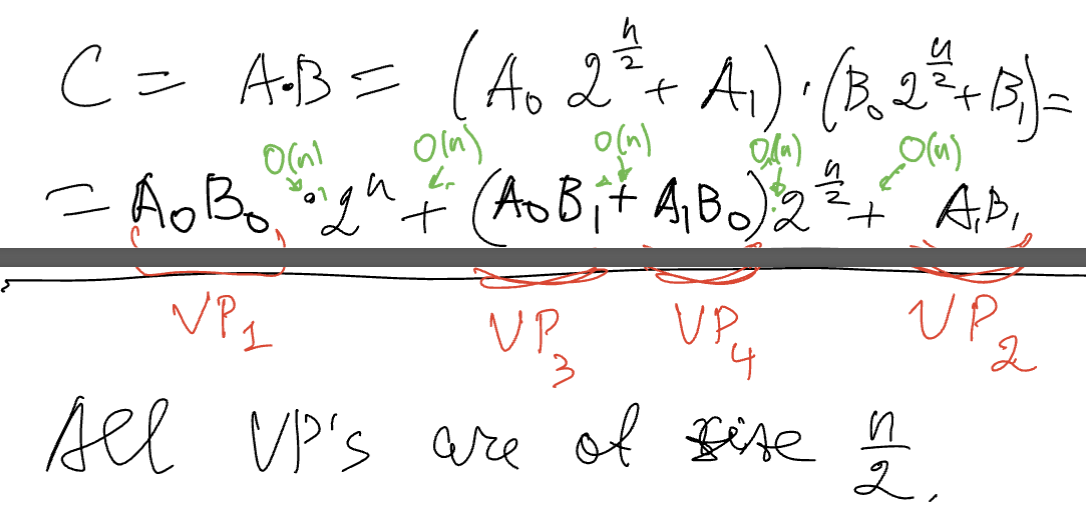 C = A·B = (A₀ 2^{n/2} + A₁) · (B₀ 2^{n/2} + B₁) =
O(n) O(n) O(n) O(n) O(n)
= A₀B₀ · 2^n + (A₀B₁ + A₁B₀) · 2^{n/2} + A₁B₁
VP₁ VP₃ VP₄ VP₂
All VP's are of size n/2.